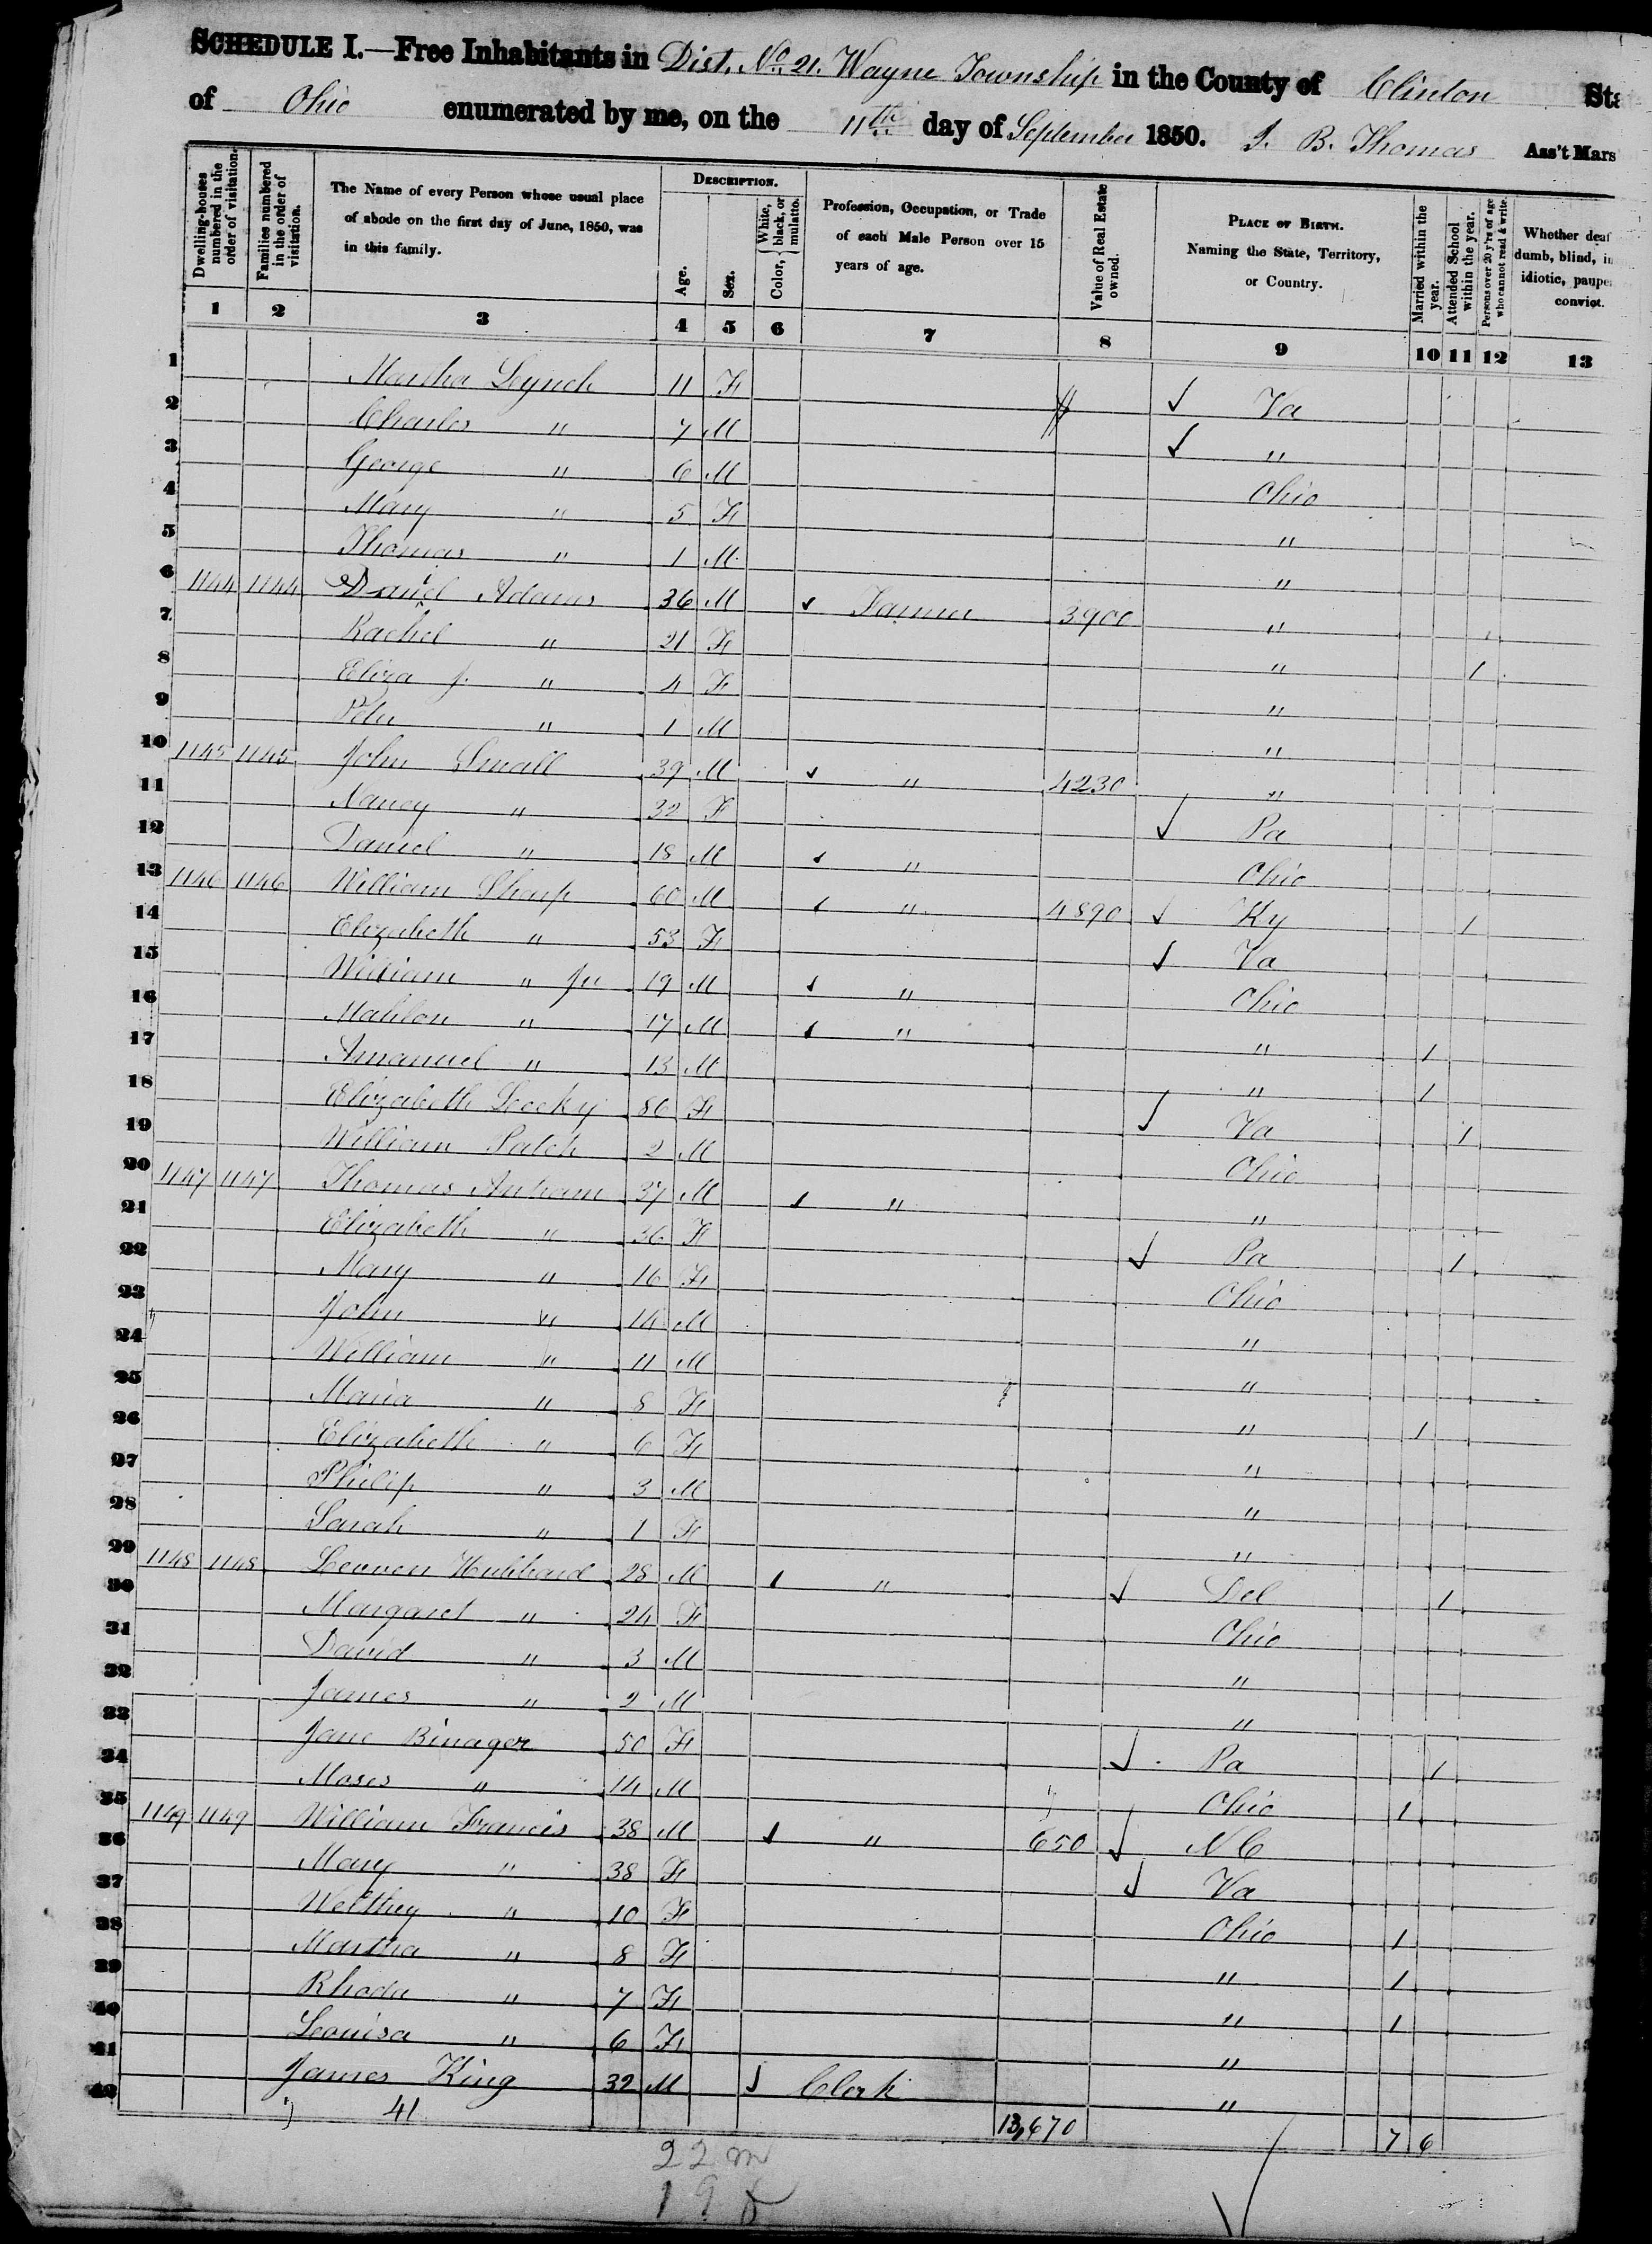 SCHEDULE I.—Free Inhabitants in Dist. No. 21. Wayne Township in the County of Clinton Sta
of Ohio enumerated by me, on the 11th day of September 1850. J. B. Thomas Ass't Mars
Dwelling-houses numbered in the order of visitation.
Families numbered in the order of visitation.
The Name of every Person whose usual place of abode on the first day of June, 1850, was in this family.
DESCRIPTION.
Age.
Sex.
Color, { White, black, or mulatto.
Profession, Occupation, or Trade of each Male Person over 15 years of age.
Value of Real Estate owned.
PLACE OF BIRTH. Naming the State, Territory, or Country.
Married within the year.
Attended School within the year.
Persons over 20 y'rs of age who cannot read & write.
Whether deaf dumb, blind, in idiotic, pauper convict.
1 2 3 4 5 6 7 8 9 10 11 12 13
1 Martha Lynch 11 F $ ✓ Va
2 Charles " 7 M ✓ "
3 George " 6 M Ohio
4 Mary " 5 F "
5 Thomas " 1 M "
6 1144 1144 Daniel Adams 36 M ✓ Farmer 3900 "
7 Rachel " 21 F " 1
8 Eliza J. " 4 F "
9 Peter " 1 M "
10 1145 1145 John Small 39 M ✓ " 4230 "
11 Nancy " 32 F ✓ Pa
12 Daniel " 18 M ✓ " Ohio
13 1146 1146 William Sharp 60 M ✓ " 4890 ✓ Ky 1
14 Elizabeth " 53 F ✓ Va
15 William " Jr 19 M ✓ " Ohio
16 Mahlon " 17 M ✓ " " 1
17 Amanuel " 13 M " 1
18 Elizabeth Leeky 86 F ✓ Va 1
19 William Patch 2 M Ohio
20 1147 1147 Thomas 37 M ✓ " "
21 Elizabeth " 36 F ✓ Pa 1
22 Mary " 16 F Ohio
23 John " 14 M "
24 William " 11 M "
25 Maria " 8 F " 1
26 Elizabeth " 6 F "
27 Philip " 3 M "
28 Sarah " 1 F "
29 1148 1148 Hubbard 28 M ✓ " ✓ Del 1
30 Margaret " 24 F Ohio
31 David " 3 M "
32 James " 2 M "
33 Jane Binager 50 F ✓ Pa 1
34 Moses " 14 M Ohio 1
35 1149 1149 William Francis 38 M ✓ " 650 ✓ N C
36 Mary " 38 F ✓ Va
37 Welthy " 10 F Ohio 1
38 Martha " 8 F " 1
39 Rhoda " 7 F " 1
40 Louisa " 6 F "
41 James King 32 M ✓ Clerk "
42 41 13,670 7 6
22 m
19 f